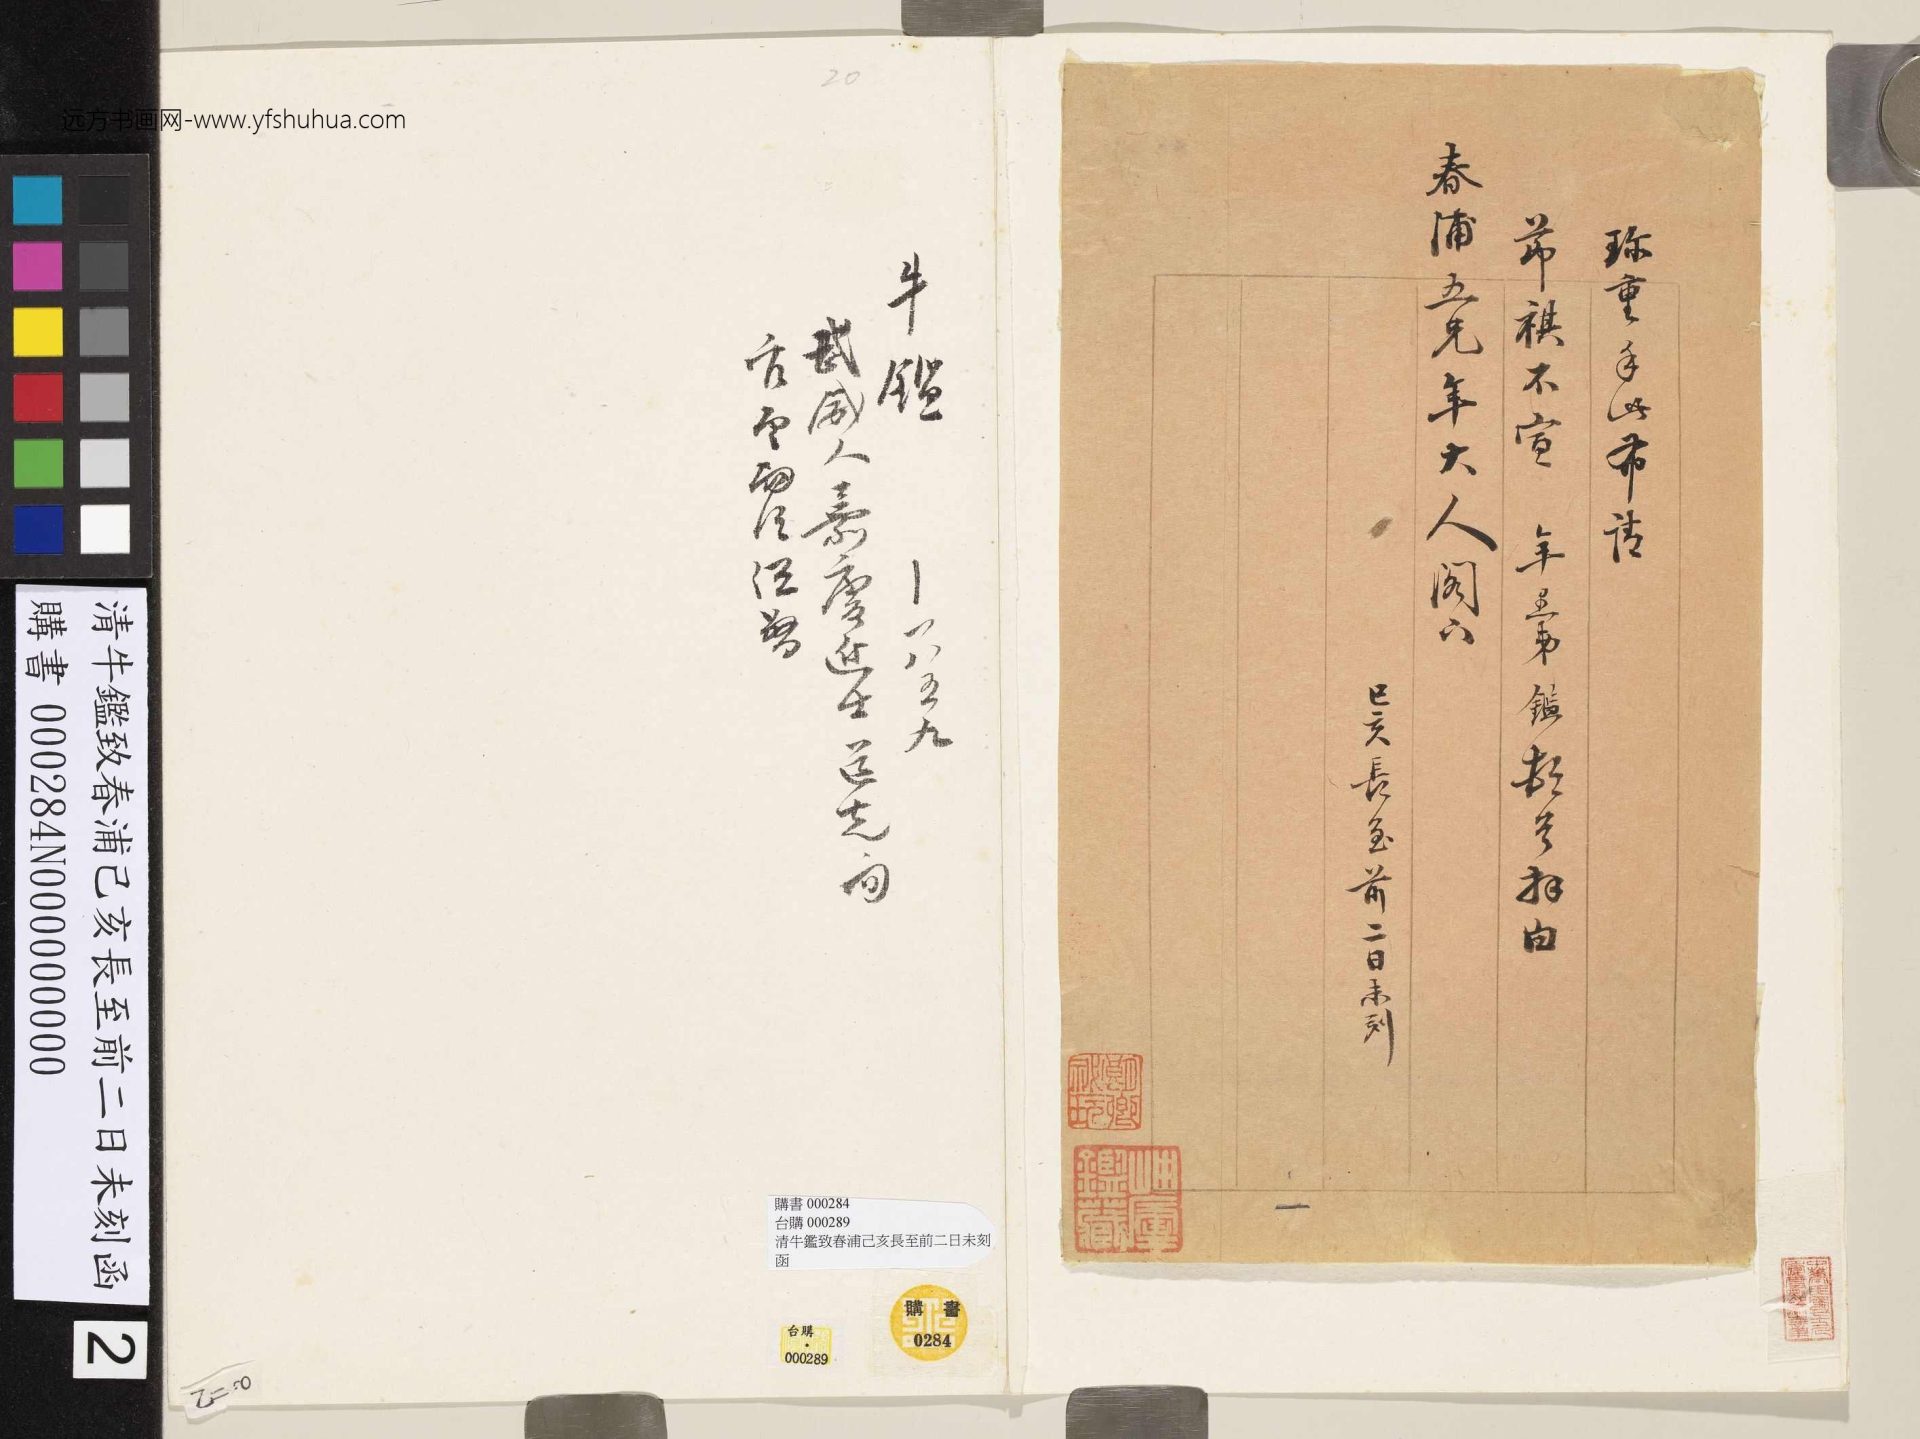 珍重手此布請
節祺不宣 年愚弟鑑頓首拜白
春浦五兄年大人閣下
己亥長至前二日未刻
一
牛鑑 一八五九
武威人嘉慶進士道光
20
远方书画网-www.yfshuhua.com
購書 000284
台購 000289
清牛鑑致春浦己亥長至前二日未刻
函
購書
0284
台購
000289
清牛鑑致春浦己亥長至前二日未刻函
購書 000284N000000000
2